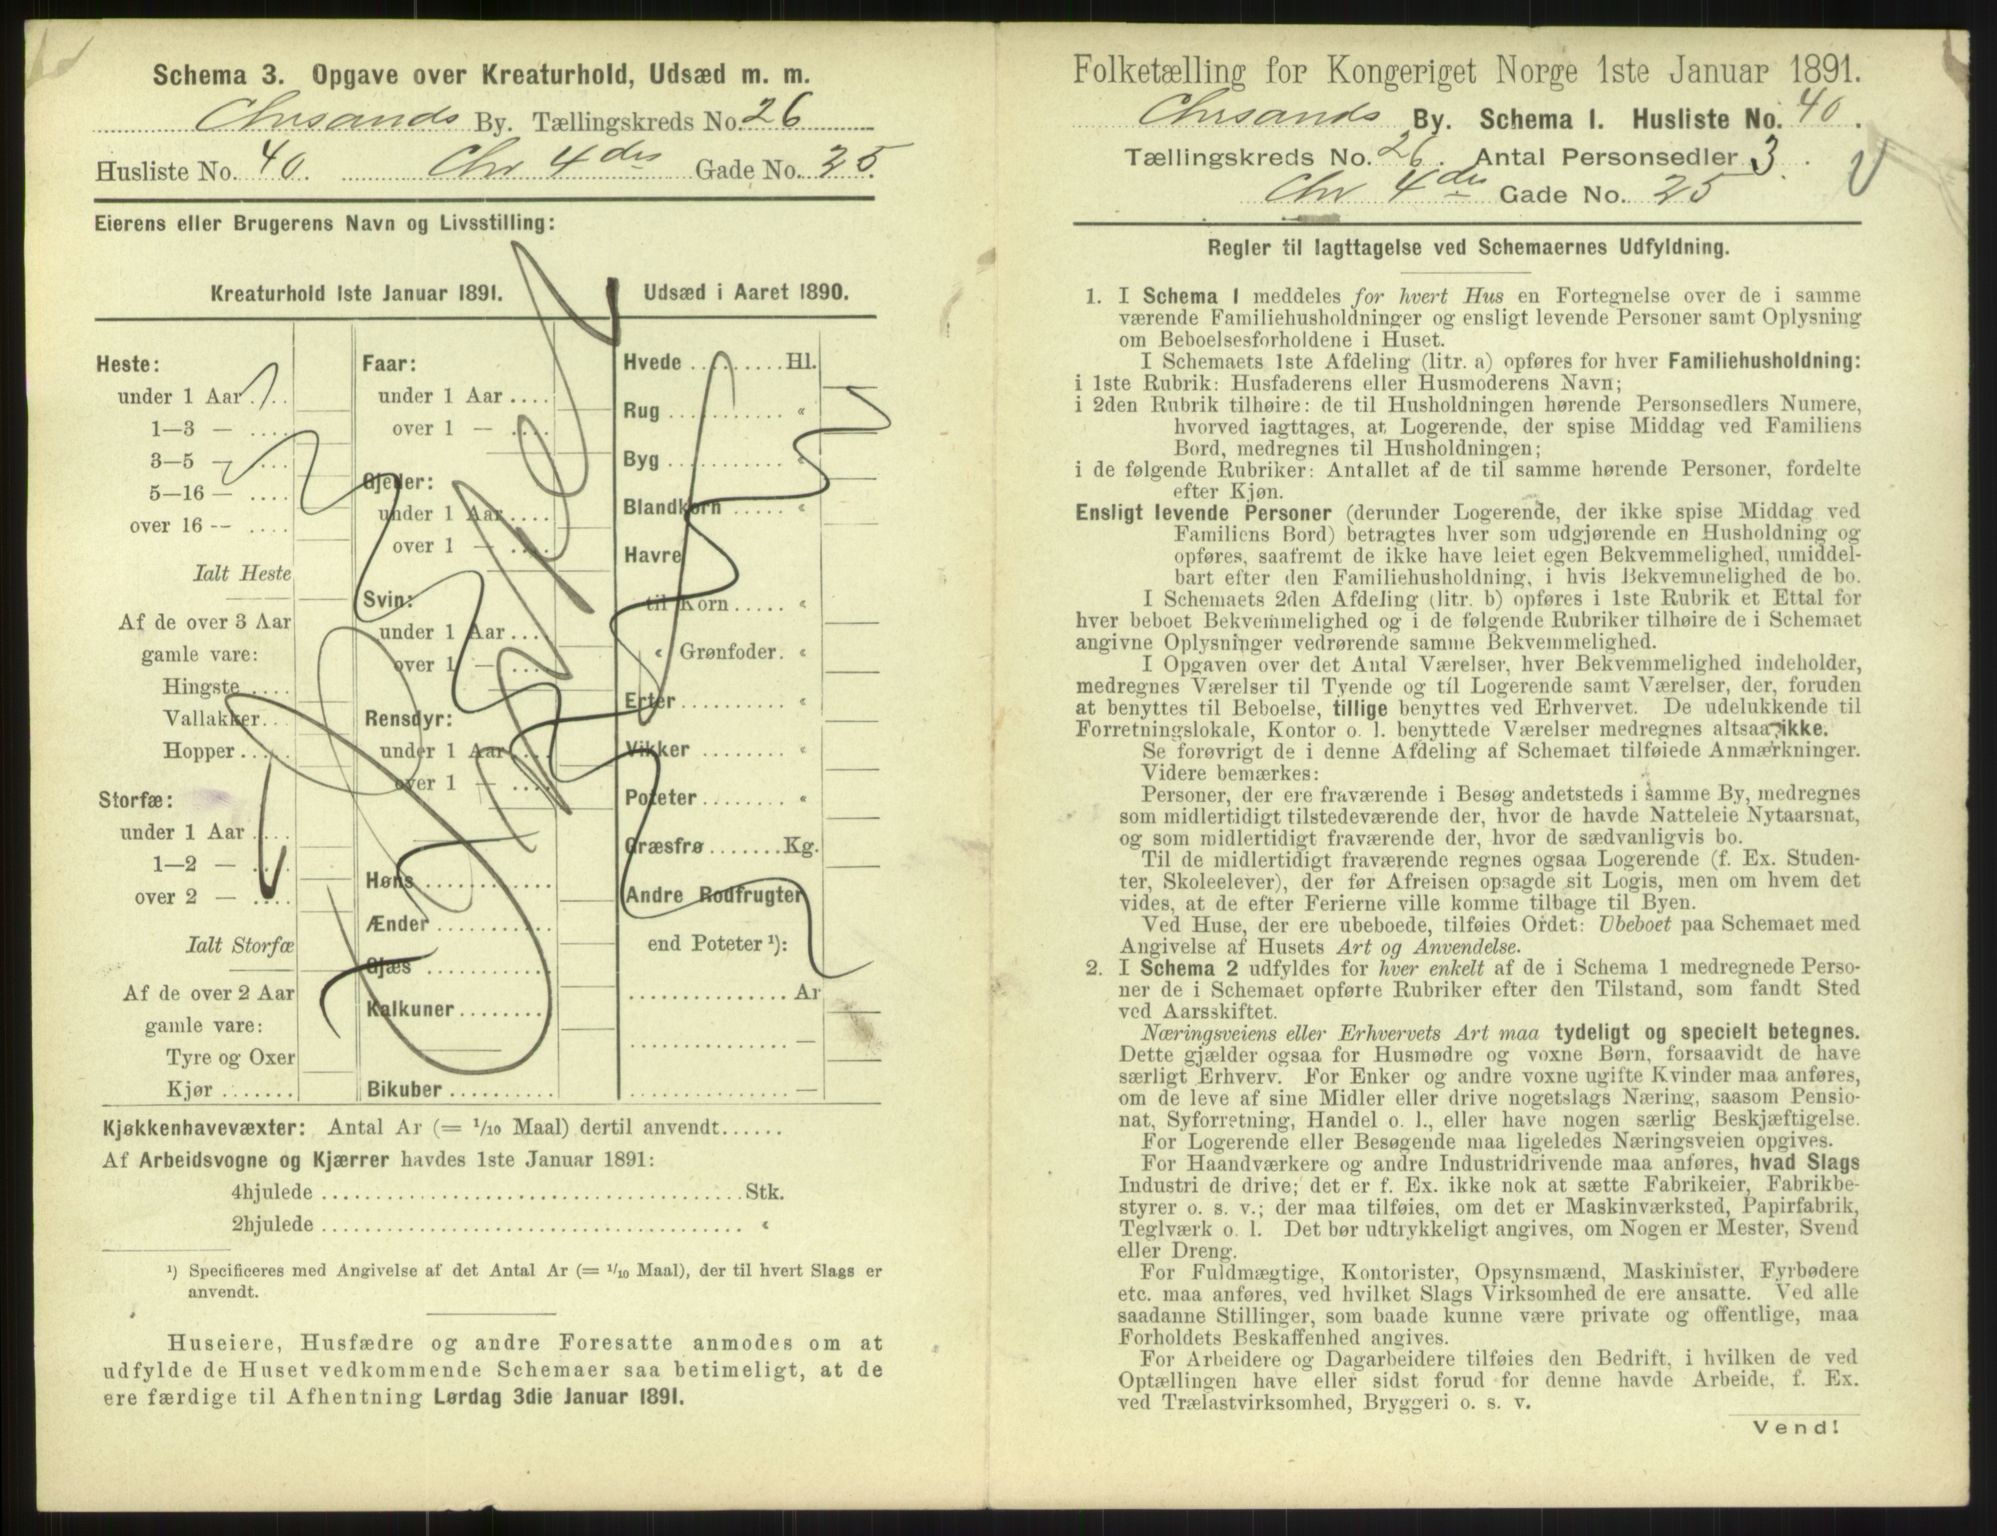 Schema 3. Opgave over Kreaturhold, Udsæd m. m.
Chrsands By. Tællingskreds No. 26
Husliste No. 40. Chr 4des Gade No. 25.
Eierens eller Brugerens Navn og Livsstilling:
Kreaturhold 1ste Januar 1891.
Heste:
under 1 Aar ....
1—3 — ....
3—5 — ....
5—16 — ....
over 16 -- ....
Ialt Heste
Af de over 3 Aar
gamle vare:
Hingste ....
Vallakker...
Hopper .....
Storfæ:
under 1 Aar ....
1—2 — ....
over 2 — ....
Ialt Storfæ
Af de over 2 Aar
gamle vare:
Tyre og Oxer
Kjør .......
Faar:
under 1 Aar ....
over 1 — ....
Gjeder:
under 1 Aar ....
over 1 — ....
Svin:
under 1 Aar ....
over 1 — ....
Rensdyr:
under 1 Aar ....
over 1 — ....
Høns ............
Ænder ...........
Gjæs ............
Kalkuner ........
Bikuber ..........
Udsæd i Aaret 1890.
Hvede ......... Hl.
Rug ........... «
Byg ........... «
Blandkorn ..... «
Havre
til Korn ..... «
« Grønfoder. «
Erter ......... «
Vikker ........ «
Poteter ........ «
Græsfrø ....... Kg.
Andre Rodfrugter
end Poteter ¹):
............... Ar
............... —
............... —
Kjøkkenhavevæxter: Antal Ar (= 1/10 Maal) dertil anvendt......
Af Arbeidsvogne og Kjærrer havdes 1ste Januar 1891:
4hjulede ..................................... Stk.
2hjulede ..................................... «
¹) Specificeres med Angivelse af det Antal Ar (= 1/10 Maal), der til hvert Slags er
anvendt.
Huseiere, Husfædre og andre Foresatte anmodes om at
udfylde de Huset vedkommende Schemaer saa betimeligt, at de
ere færdige til Afhentning Lørdag 3die Januar 1891.
Folketælling for Kongeriget Norge 1ste Januar 1891.
Chrsands By. Schema I. Husliste No. 40.
Tællingskreds No. 26. Antal Personsedler 3.
Chr 4des Gade No. 25
Regler til Iagttagelse ved Schemaernes Udfyldning.
1. I Schema 1 meddeles for hvert Hus en Fortegnelse over de i samme
værende Familiehusholdninger og ensligt levende Personer samt Oplysning
om Beboelsesforholdene i Huset.
I Schemaets 1ste Afdeling (litr. a) opføres for hver Familiehusholdning:
i 1ste Rubrik: Husfaderens eller Husmoderens Navn;
i 2den Rubrik tilhøire: de til Husholdningen hørende Personsedlers Numere,
hvorved iagttages, at Logerende, der spise Middag ved Familiens
Bord, medregnes til Husholdningen;
i de følgende Rubriker: Antallet af de til samme hørende Personer, fordelte
efter Kjøn.
Ensligt levende Personer (derunder Logerende, der ikke spise Middag ved
Familiens Bord) betragtes hver som udgjørende en Husholdning og
opføres, saafremt de ikke have leiet egen Bekvemmelighed, umiddel-
bart efter den Familiehusholdning, i hvis Bekvemmelighed de bo.
I Schemaets 2den Afdeling (litr. b) opføres i 1ste Rubrik et Ettal for
hver beboet Bekvemmelighed og i de følgende Rubriker tilhøire de i Schemaet
angivne Oplysninger vedrørende samme Bekvemmelighed.
I Opgaven over det Antal Værelser, hver Bekvemmelighed indeholder,
medregnes Værelser til Tyende og til Logerende samt Værelser, der, foruden
at benyttes til Beboelse, tillige benyttes ved Erhvervet. De udelukkende til
Forretningslokale, Kontor o. l. benyttede Værelser medregnes altsaa ikke.
Se forøvrigt de i denne Afdeling af Schemaet tilføiede Anmærkninger.
Videre bemærkes:
Personer, der ere fraværende i Besøg andetsteds i samme By, medregnes
som midlertidigt tilstedeværende der, hvor de havde Natteleie Nytaarsnat,
og som midlertidigt fraværende der, hvor de sædvanligvis bo.
Til de midlertidigt fraværende regnes ogsaa Logerende (f. Ex. Studen-
ter, Skoleelever), der før Afreisen opsagde sit Logis, men om hvem det
vides, at de efter Ferierne ville komme tilbage til Byen.
Ved Huse, der ere ubeboede, tilføies Ordet: Ubeboet paa Schemaet med
Angivelse af Husets Art og Anvendelse.
2. I Schema 2 udfyldes for hver enkelt af de i Schema 1 medregnede Perso-
ner de i Schemaet opførte Rubriker efter den Tilstand, som fandt Sted
ved Aarsskiftet.
Næringsveiens eller Erhvervets Art maa tydeligt og specielt betegnes.
Dette gjælder ogsaa for Husmødre og voxne Børn, forsaavidt de have
særligt Erhverv. For Enker og andre voxne ugifte Kvinder maa anføres,
om de leve af sine Midler eller drive nogetslags Næring, saasom Pensio-
nat, Syforretning, Handel o. l., eller have nogen særlig Beskjæftigelse.
For Logerende eller Besøgende maa ligeledes Næringsveien opgives.
For Haandværkere og andre Industridrivende maa anføres, hvad Slags
Industri de drive; det er f. Ex. ikke nok at sætte Fabrikeier, Fabrikbe-
styrer o. s. v.; der maa tilføies, om det er Maskinværksted, Papirfabrik,
Teglværk o. l. Det bør udtrykkeligt angives, om Nogen er Mester, Svend
eller Dreng.
For Fuldmægtige, Kontorister, Opsynsmænd, Maskinister, Fyrbødere
etc. maa anføres, ved hvilket Slags Virksomhed de ere ansatte. Ved alle
saadanne Stillinger, som baade kunne være private og offentlige, maa
Forholdets Beskaffenhed angives.
For Arbeidere og Dagarbeidere tilføies den Bedrift, i hvilken de ved
Optællingen have eller sidst forud for denne havde Arbeide, f. Ex.
ved Trælastvirksomhed, Bryggeri o. s. v.
Vend!